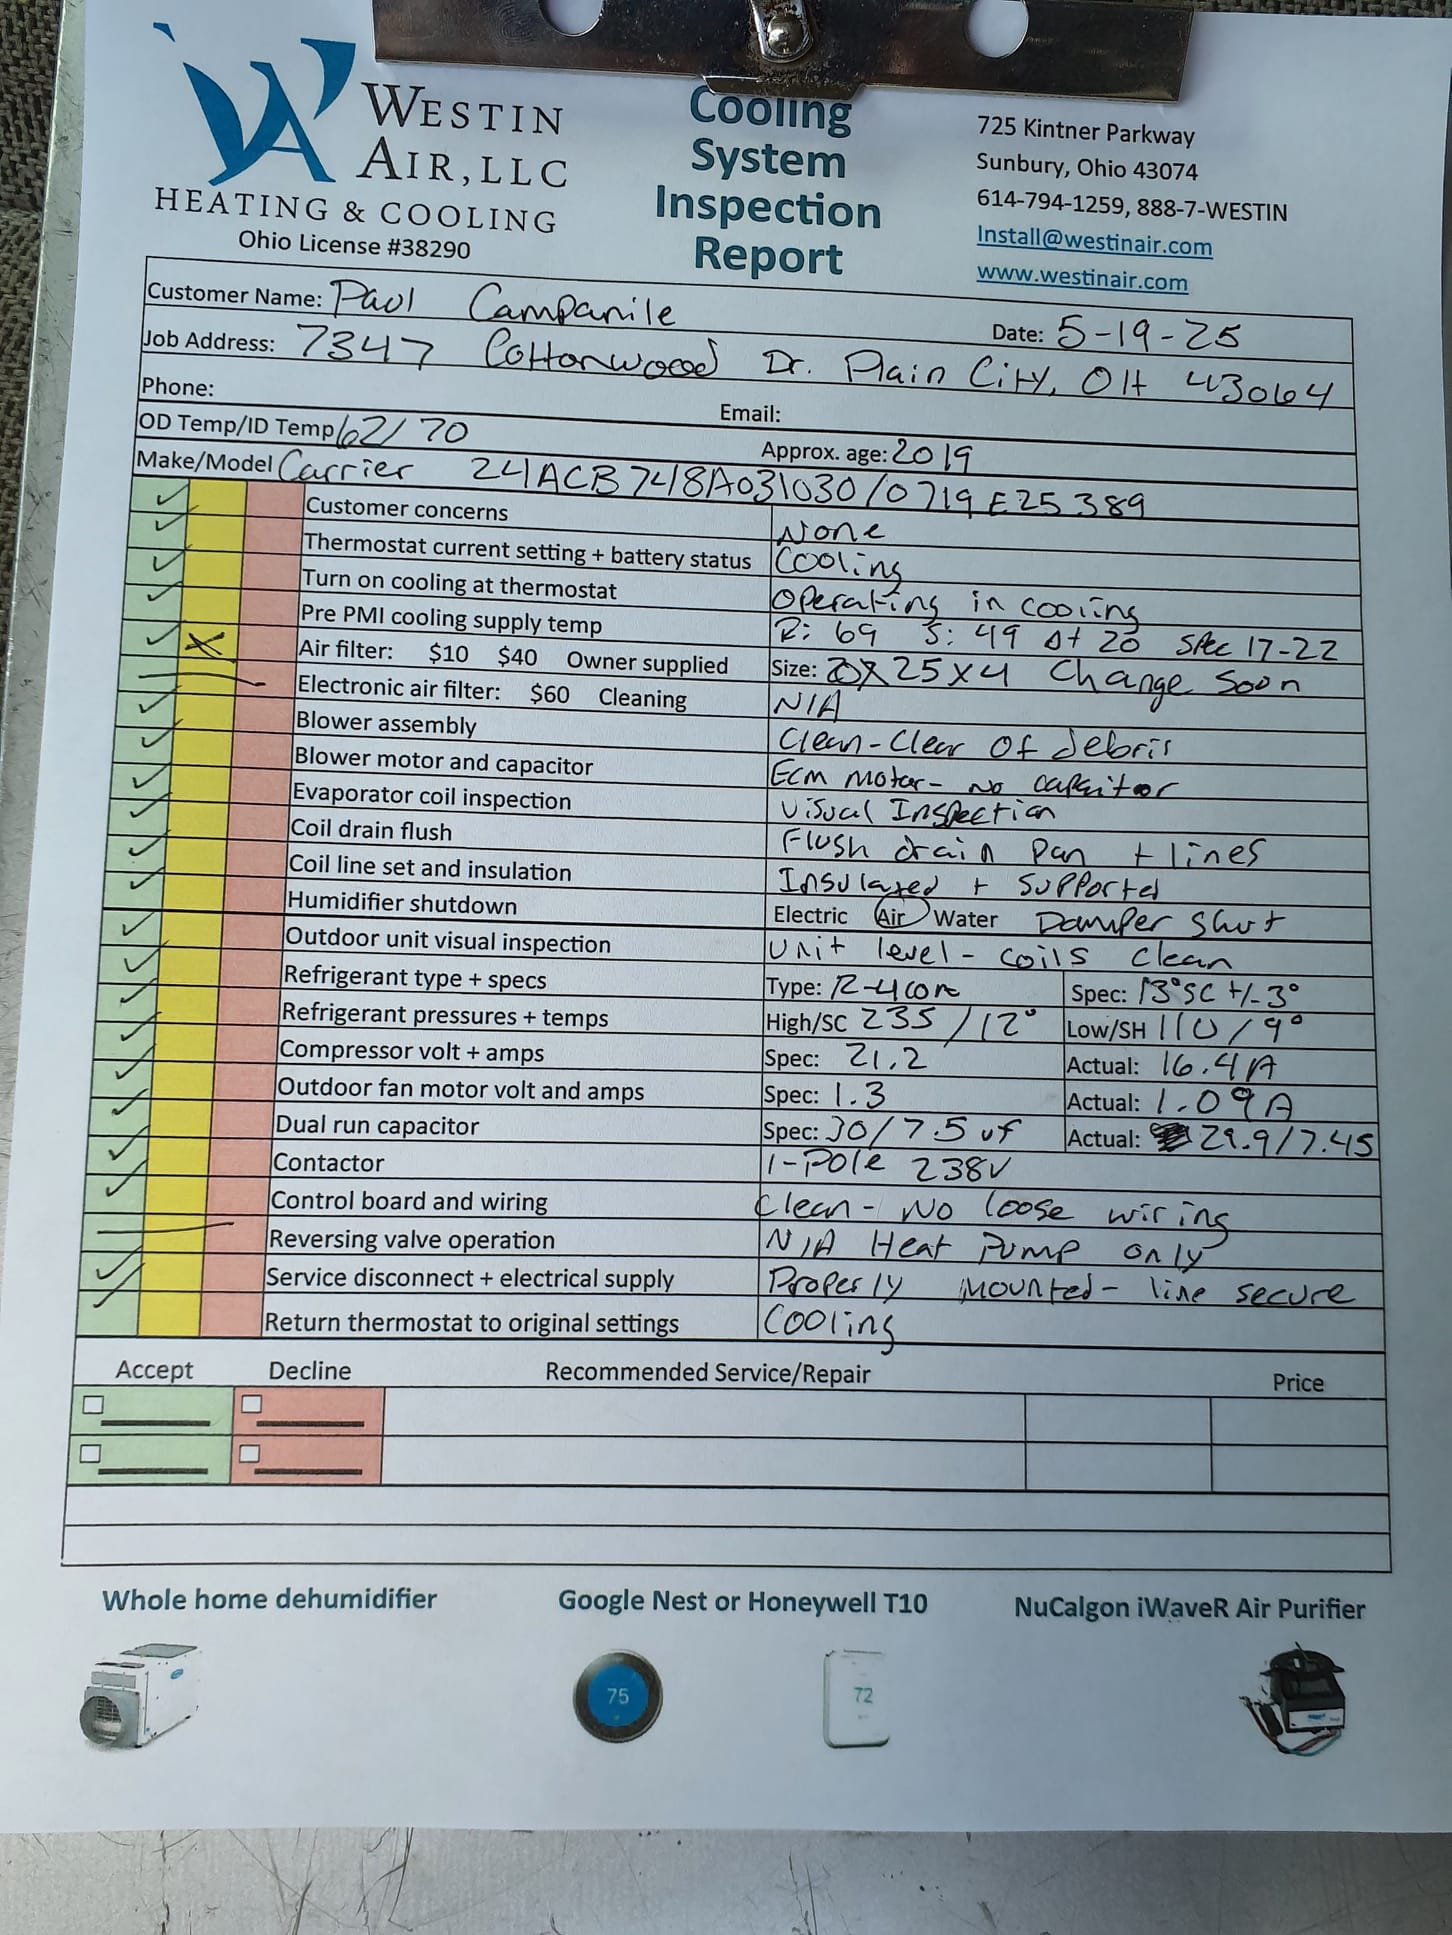 WESTIN
AIR, LLC
HEATING & COOLING
Ohio License #38290
Cooling
System
Inspection
Report
725 Kintner Parkway
Sunbury, Ohio 43074
614-794-1259, 888-7-WESTIN
Install@westinair.com
www.westinair.com
Customer Name: Paul Campanile Date: 5-19-25
Job Address: 7347 Cottonwood Dr. Plain City, OH 43064
Phone: Email:
OD Temp/ID Temp 62/70 Approx. age: 2019
Make/Model Carrier 24ACB748A031030/0719E25389
Customer concerns None
Thermostat current setting + battery status Cooling
Turn on cooling at thermostat Operating in cooling
Pre PMI cooling supply temp R: 69 S: 49 Δt 20 Spec 17-22
Air filter: $10 $40 Owner supplied Size: 25x4 Change Soon
Electronic air filter: $60 Cleaning N/A
Blower assembly Clean-Clear of debris
Blower motor and capacitor Ecm motor- No capacitor
Evaporator coil inspection Visual Inspection
Coil drain flush Flush drain pan + lines
Coil line set and insulation Insulated + supported
Humidifier shutdown Electric Air Water Damper shut
Outdoor unit visual inspection Unit level- coils clean
Refrigerant type + specs Type: R-410A Spec: 13°SC +/-3°
Refrigerant pressures + temps High/SC 235/12° Low/SH 110/9°
Compressor volt + amps Spec: 21.2 Actual: 16.4A
Outdoor fan motor volt and amps Spec: 1.3 Actual: 1.09A
Dual run capacitor Spec: 30/7.5 uf Actual: 29.9/7.45
Contactor 1-Pole 238V
Control board and wiring Clean- No loose wiring
Reversing valve operation N/A Heat Pump only
Service disconnect + electrical supply Properly mounted- line secure
Return thermostat to original settings Cooling
Accept Decline Recommended Service/Repair Price
Whole home dehumidifier Google Nest or Honeywell T10 NuCalgon iWaveR Air Purifier
75 72